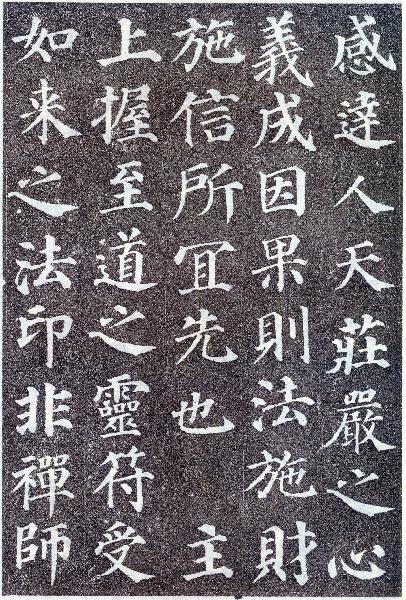 感達人天莊嚴之心
義成因果則法施財
施信所冝先也　主
上握至道之靈符受
如来之法印非禪師